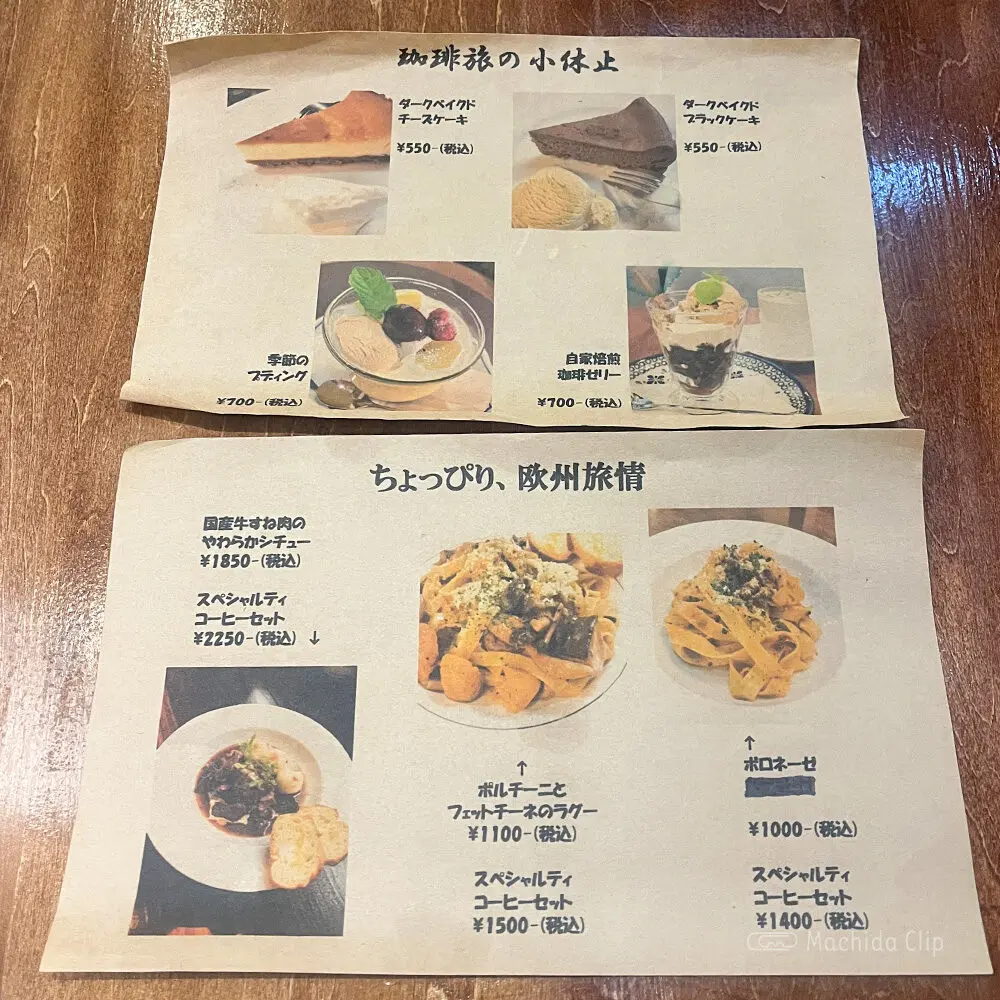 珈琲旅の小休止
ダークベイクド
チーズケーキ
¥550-(税込)
ダークベイクド
ブラックケーキ
¥550-(税込)
季節の
プディング
¥700-(税込)
自家焙煎
珈琲ゼリー
¥700-(税込)
ちょっぴり、欧州旅情
国産牛すね肉の
やわらかシチュー
¥1850-(税込)
スペシャルティ
コーヒーセット
¥2250-(税込) ↓
↑
ポルチーニと
フェットチーネのラグー
¥1100-(税込)
スペシャルティ
コーヒーセット
¥1500-(税込)
↑
ボロネーゼ
¥1000-(税込)
スペシャルティ
コーヒーセット
¥1400-(税込)
Machida Clip